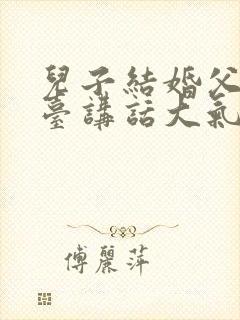 兒子結婚父
臺講話大氣
傅麗萍